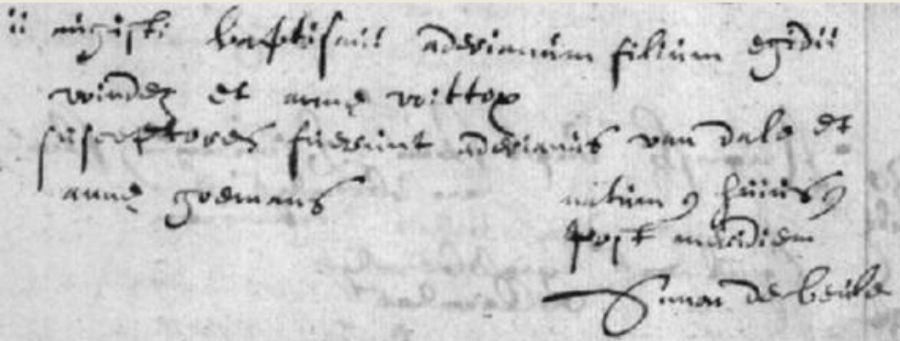 ii augusti baptisavi adrianum filium egidii
vindez et anne vrittox
susceptores fuerunt adrianus van dale et
anne goemans natum 9 huius
post meridiem
Simon de beule